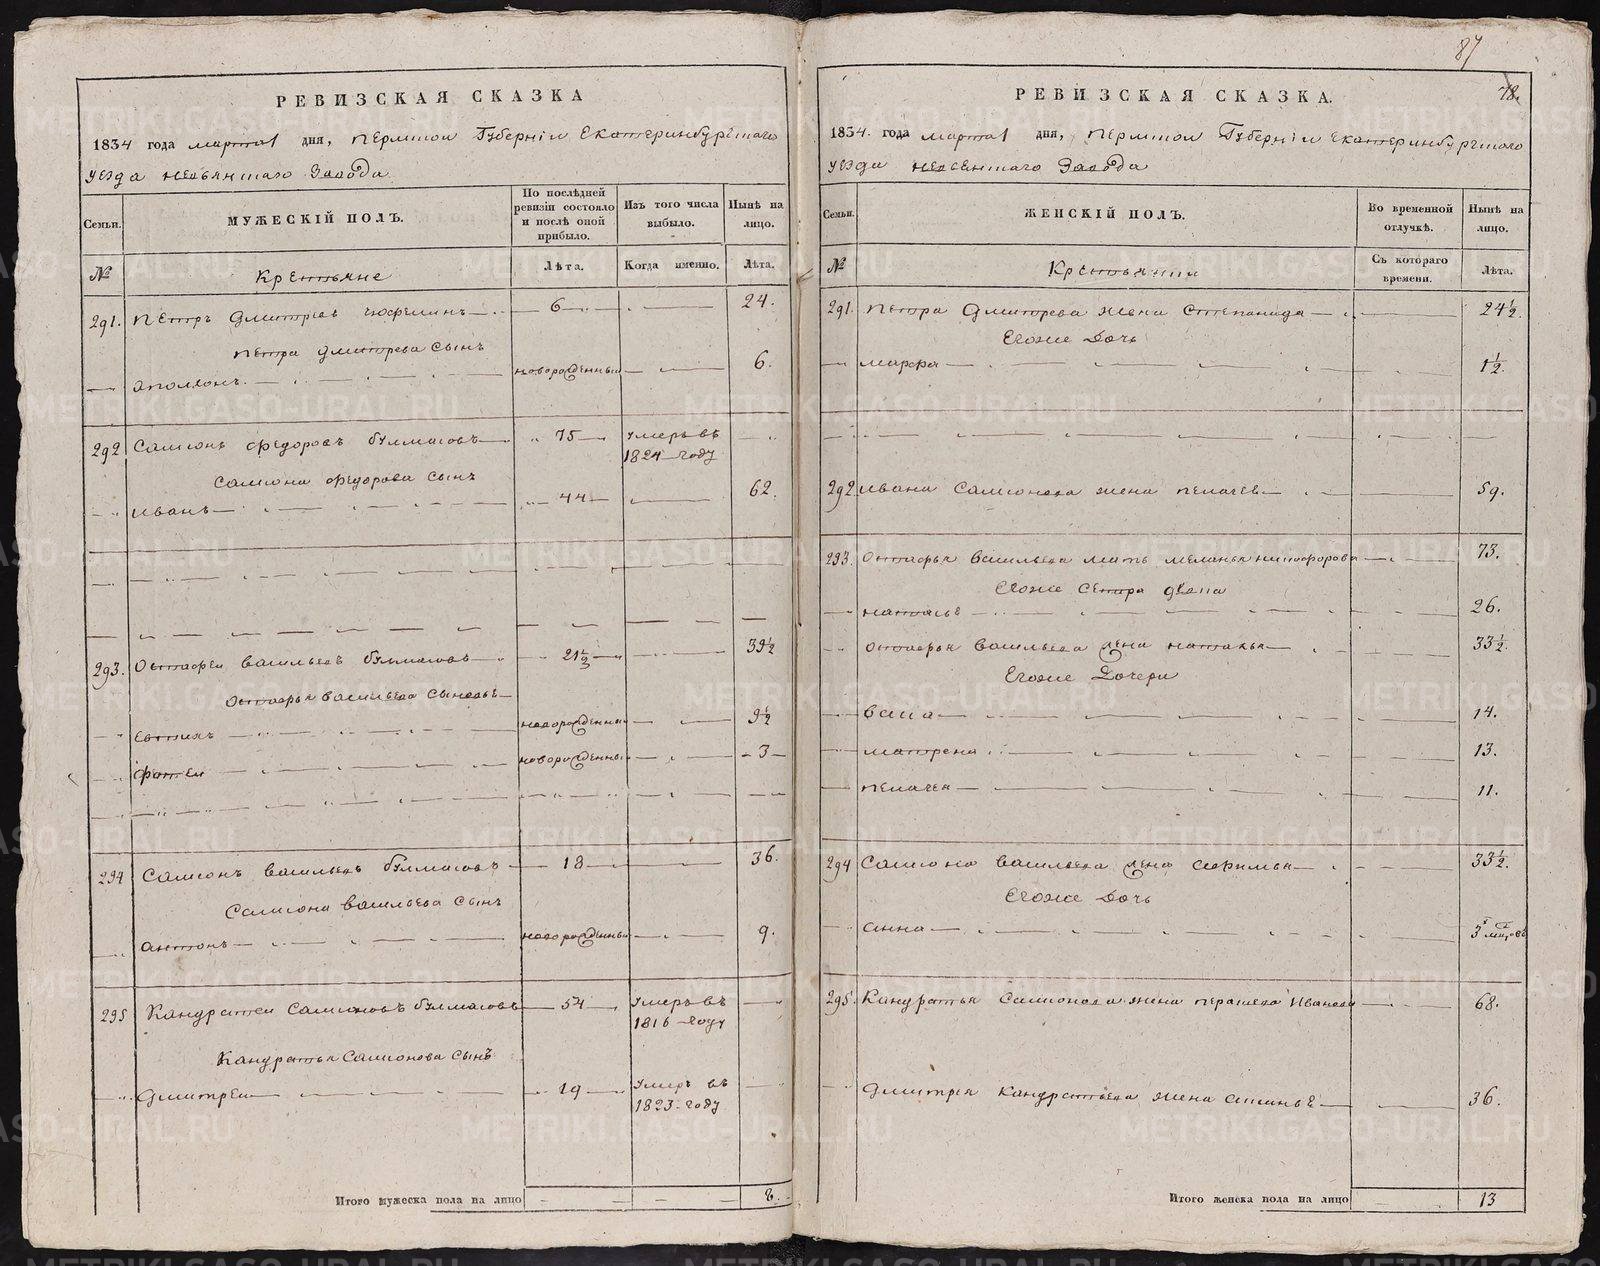 87
РЕВИЗСКАЯ СКАЗКА
1834 года марта дня, Пермской Губернiи Екатеринбургскаго
уезда невьянскаго Завода
Семьи.
МУЖЕСКIЙ ПОЛЪ.
По послѣдней ревизiи состояло и послѣ оной прибыло.
Изъ того числа выбыло.
Нынѣ на лицо.
№
Крестьяне
Лѣта.
Когда именно.
Лѣта.
291. Петръ Дмитрiевъ 6 24.
Петра Дмитрева сынъ
Аполлонъ новорожденный 6.
292 Самсонъ Федоровъ булмасовъ 75 умеръ въ 1824 году
Самсона Федорова сынъ
Иванъ 44 62.
293. Остафей васильевъ булмасовъ 21½ 39½
Остафья васильева сыновья
новорожденный 9½
Фотей новорожденный 3
294 Самсонъ васильевъ булмасовъ 18 36.
Самсона васильева сынъ
Антонъ новорожденный 9.
295 Кандратей Самсоновъ булмасовъ 54 умеръ въ 1816 году
Кандратья Самсонова сынъ
Дмитрей 19 умеръ въ 1823 году
Итого мужеска пола на лицо 8.
РЕВИЗСКАЯ СКАЗКА.
78.
1834. года марта дня, Пермской Губернiи екатеринбургскаго
уезда невьянскаго Завода
Семьи.
ЖЕНСКIЙ ПОЛЪ.
Во временной отлучкѣ.
Нынѣ на лицо.
№
Крестьянки
Съ котораго времени.
Лѣта.
291. Петра Дмитрева жена Степанида 24½.
Егоже Дочь
марфа 1½.
292 Ивана Самсонова жена пелагея 59.
293. Остафья васильева мать меланья никифорова 73.
Егоже сестра девка
наталья 26.
Остафья васильева жена наталья 33½.
Егоже Дочери
14.
матрена 13.
пелагея 11.
294 Самсона васильева жена 33½.
Егоже Дочь
Анна
295. Кандратья Самсонова жена Иванова 68.
Дмитрея Кандратьева жена 36.
Итого женска пола на лицо 13
METRIKI.GASO-URAL.RU